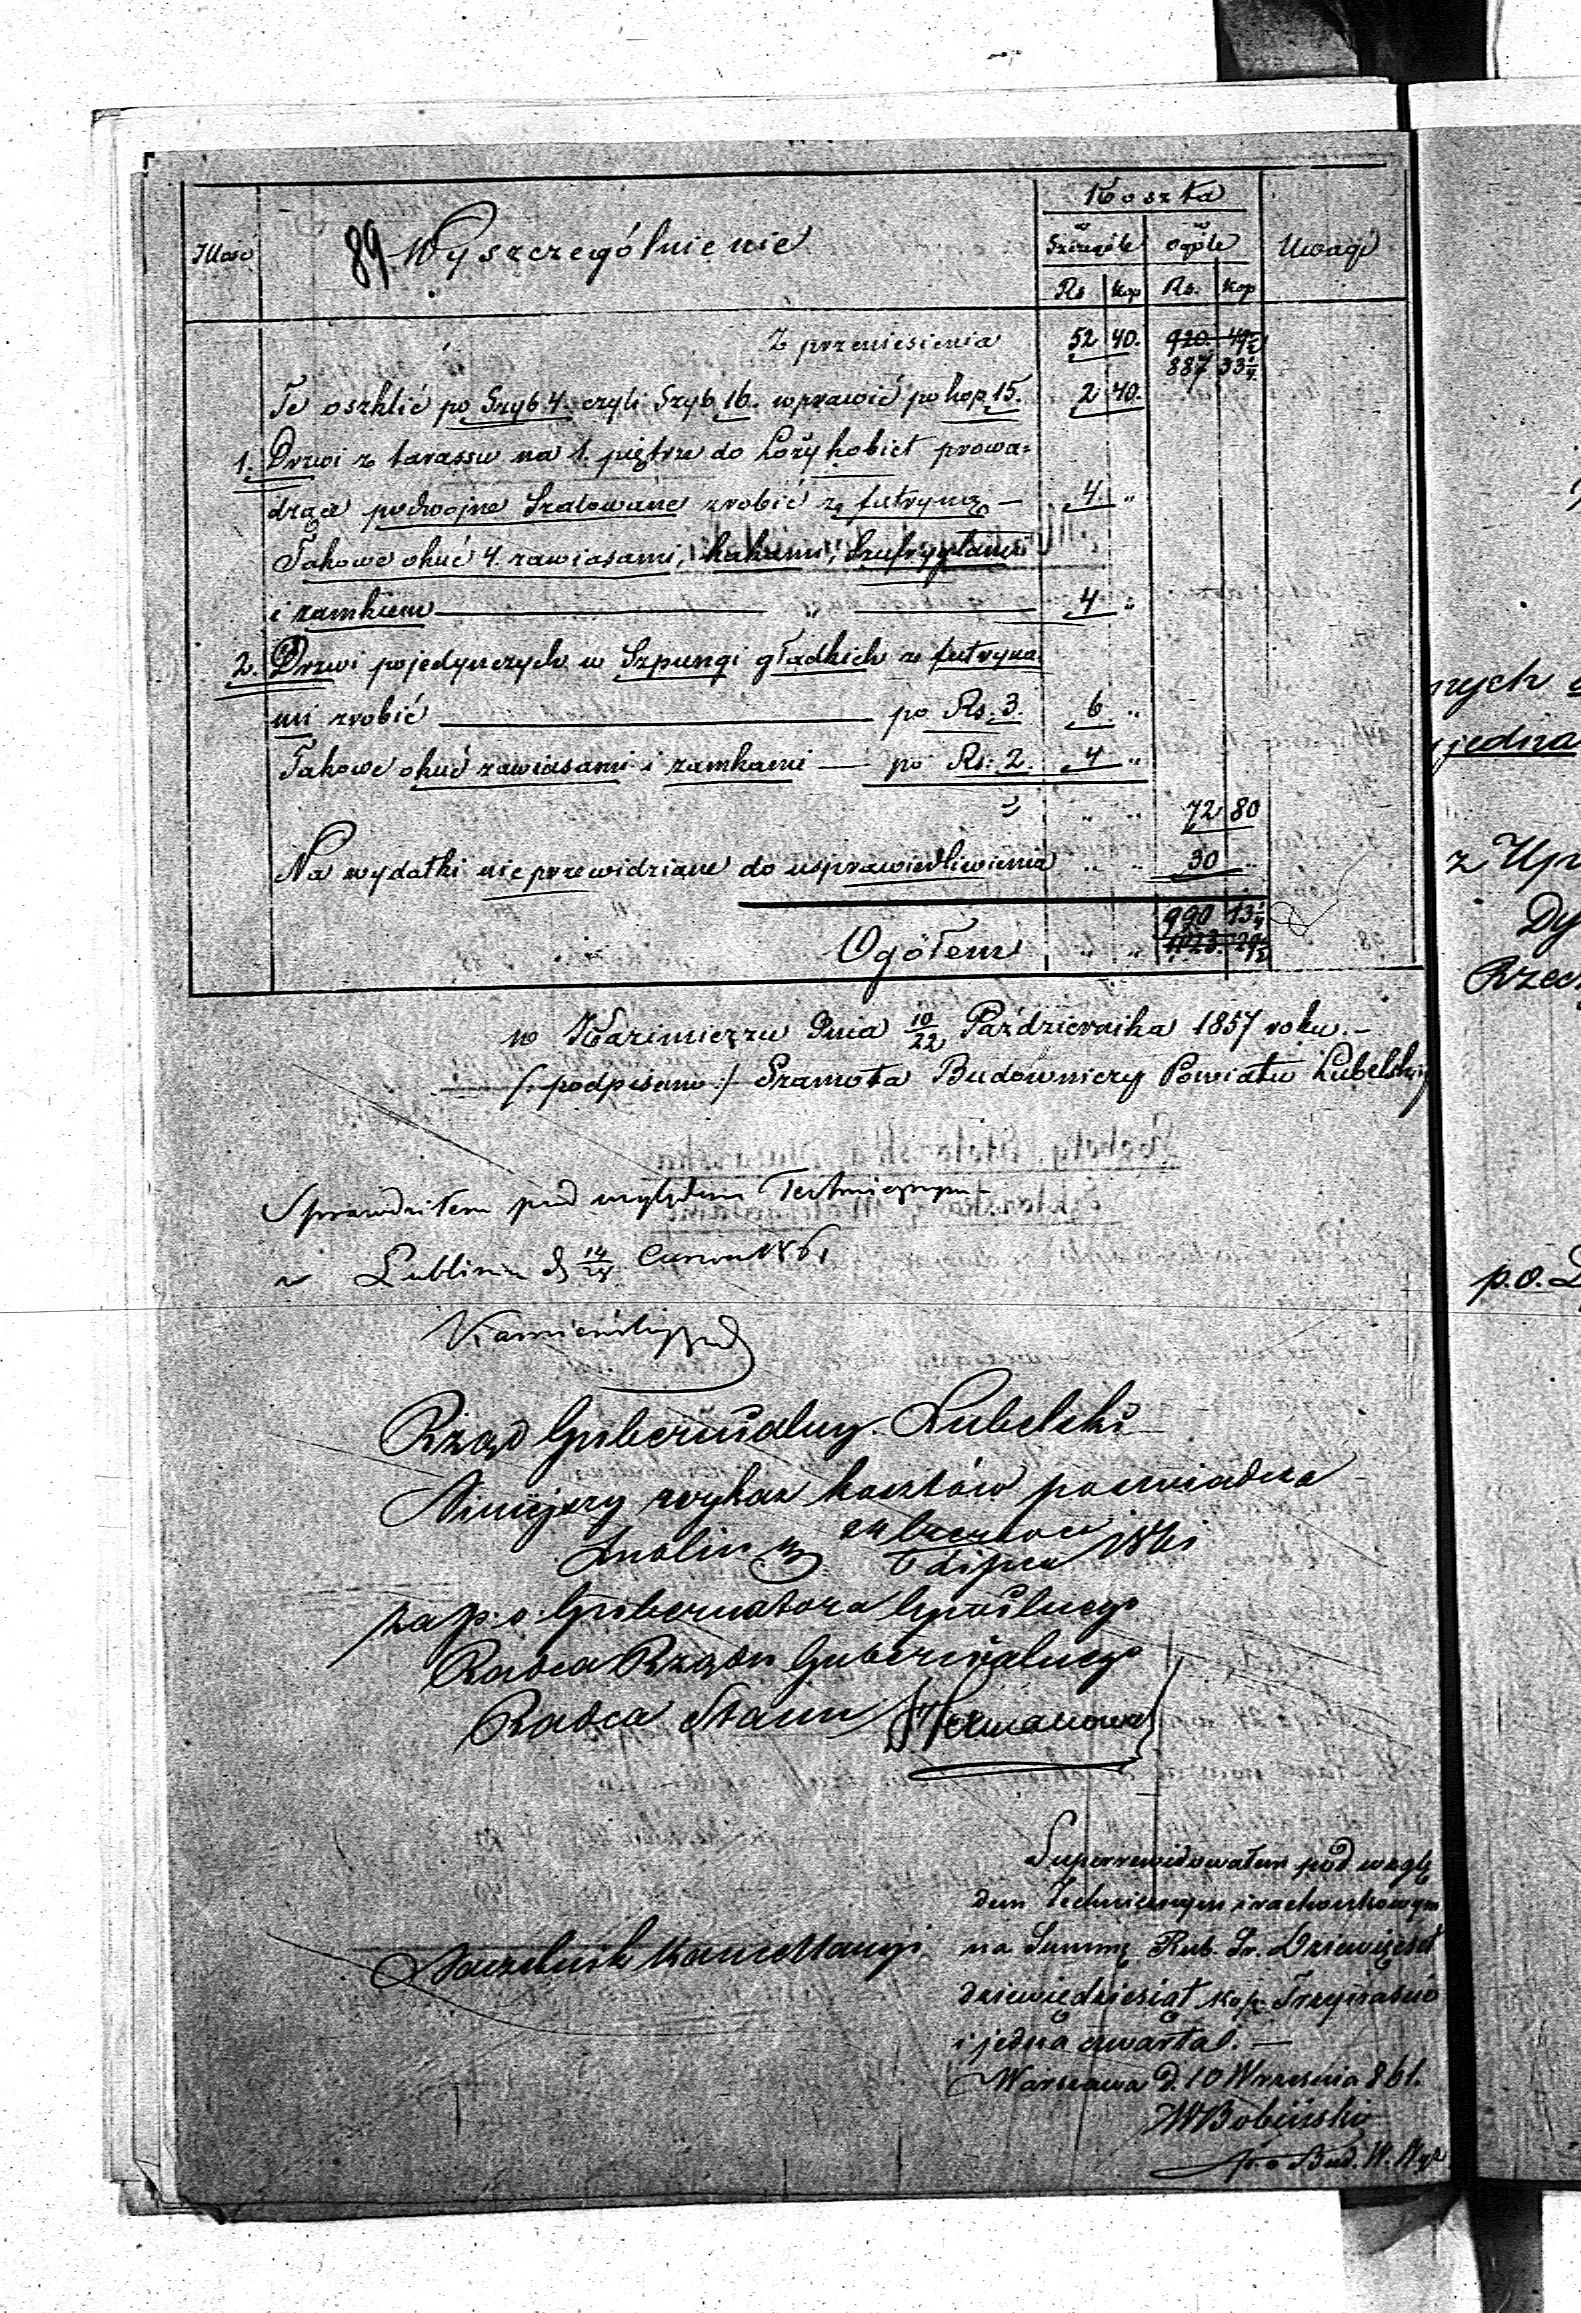 Ilość
89 Wyszczególnienie
Koszta
w Szczególe
w ogóle
Uwagi
Rs kop Rs. kop
Z przeniesienia 52 40. 920 49½
887 33¼
Te oszklić po Szyb 4. czyli Szyb 16. wprawić po kop 15. 2 40.
1. Drzwi z tarassu na 1. piętrze do Loży kobiet prowa=
dzące podwojne Szalowane zrobić z futryną — 4. „
Takowe okuć 4. zawiasami, hakami, Szufryglami
i zamkiem — „ — 4 „
2. Drzwi pojedynczych w Szpungi gładkich z futryna
mi zrobić — po Rs. 3. 6 „
Takowe okuć zawiasami i zamkami — po Rs: 2. 4 „
„ „ „ 72 80
Na wydatki nieprzewidziane do usprawiedliwienia „ „ 30 „
990 13¼
Ogółem „ „ 1023. 29½
w Kazimierzu Dnia 10/22 Października 1857 roku. —
/: podpisano :/ Szamota Budowniczy Powiatu Lubelskig
Sprawdziłem pod względem Technicznym —
w Lublinie d 14/ Czerwca 1861
Rząd Gubernialny Lubelski
Niniejszy wykaz kosztów poswiadcza
Lublin d Czerwca
Lipca 1861
za p. o. Gubernatora Cywilnego
Radca Rządu Gubernialnego
Radca Stanu
Naczelnik Kancellaryi
Superrewidowałem pod wzglę
dem Technicznym i rachunkowym
na Summę Rub. Sr. Dziewięćset
dziewięćdziesiąt kop. Trzynaście
i jedna czwarta. —
Warszawa D. 10 Września 861.
WBobiński
p. o Bud. W.
nych
jedna
z Up
Dy
Rzecz
p. o. D